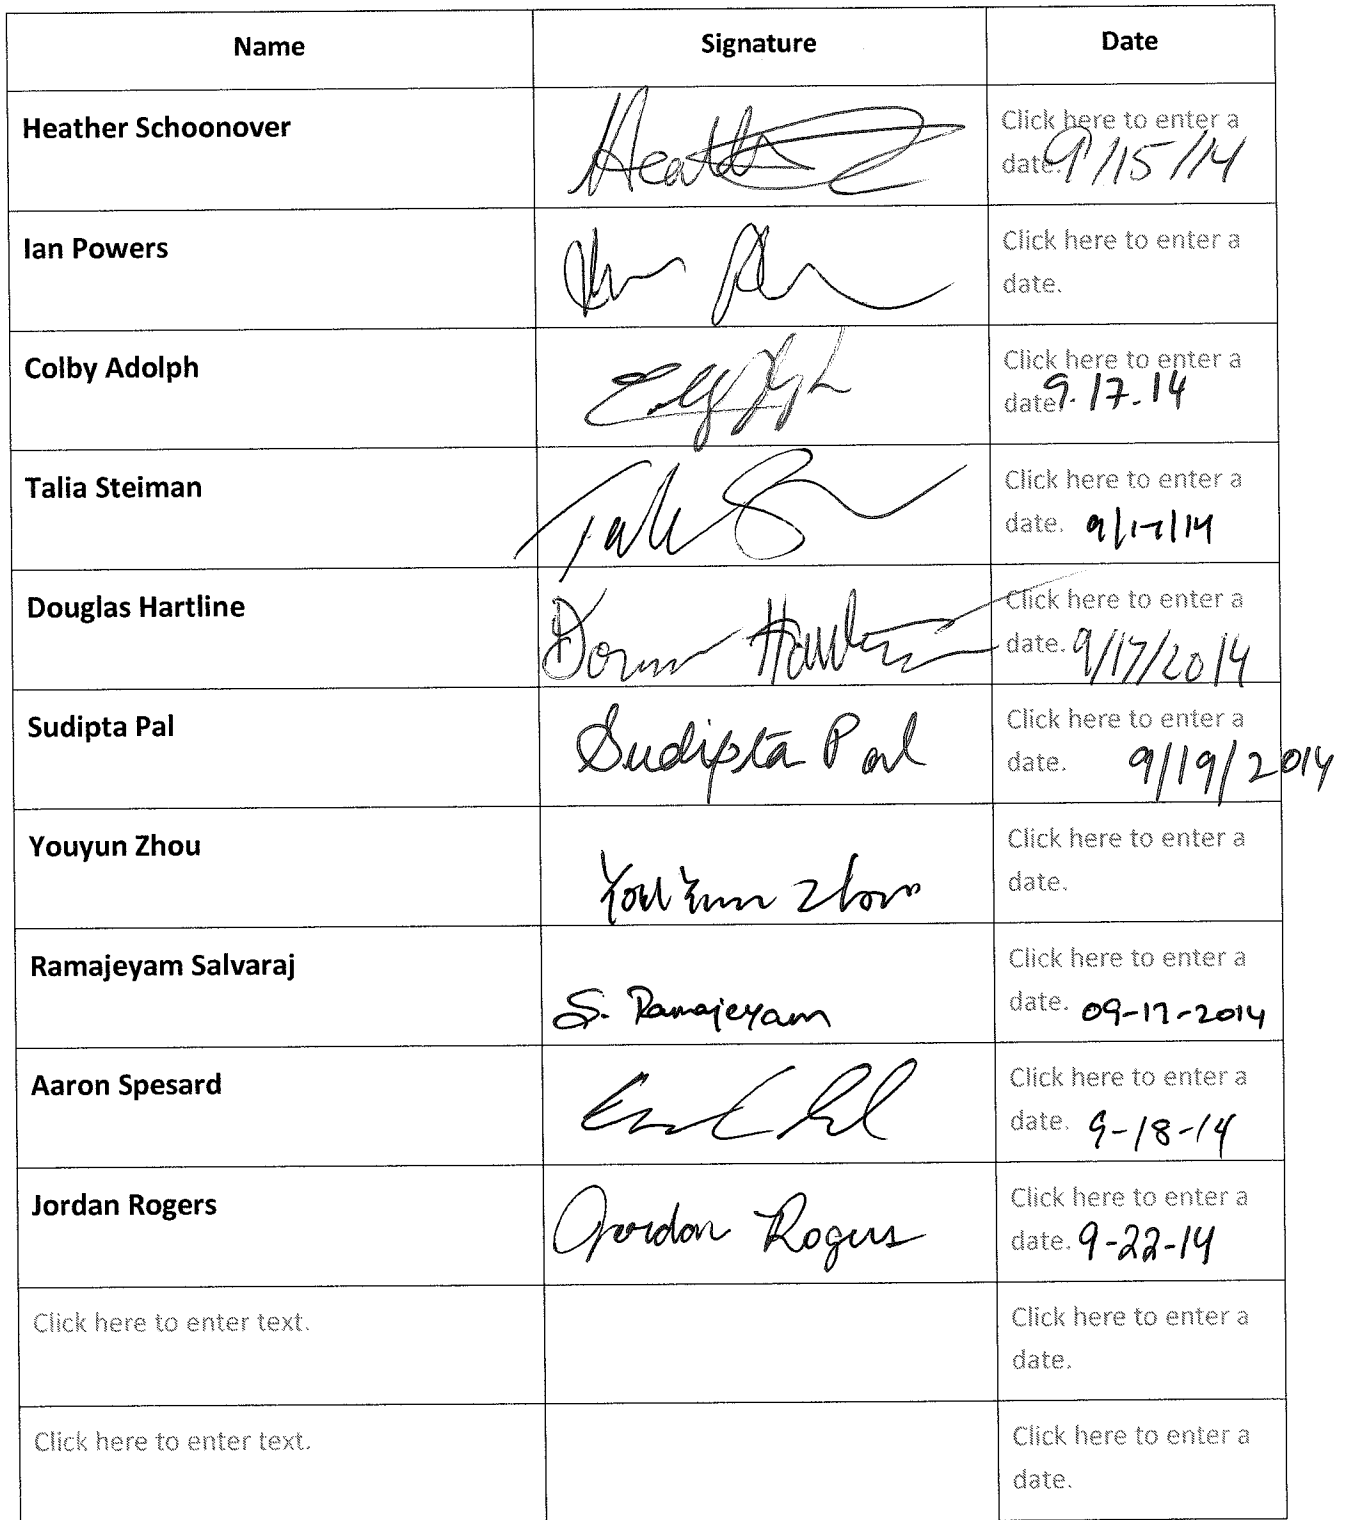 Name Signature Date
Heather Schoonover Click here to enter a
date. 9/15/14
Ian Powers Click here to enter a
date.
Colby Adolph Click here to enter a
date. 9.17.14
Talia Steiman Click here to enter a
date. 9/17/14
Douglas Hartline Click here to enter a
date. 9/17/2014
Sudipta Pal Sudipta Pal Click here to enter a
date. 9/19/2014
Youyun Zhou Youyun Zhou Click here to enter a
date.
Ramajeyam Salvaraj S. Ramajeyam Click here to enter a
date. 09-17-2014
Aaron Spesard Click here to enter a
date. 9-18-14
Jordan Rogers Jordan Rogers Click here to enter a
date. 9-22-14
Click here to enter text. Click here to enter a
date.
Click here to enter text. Click here to enter a
date.